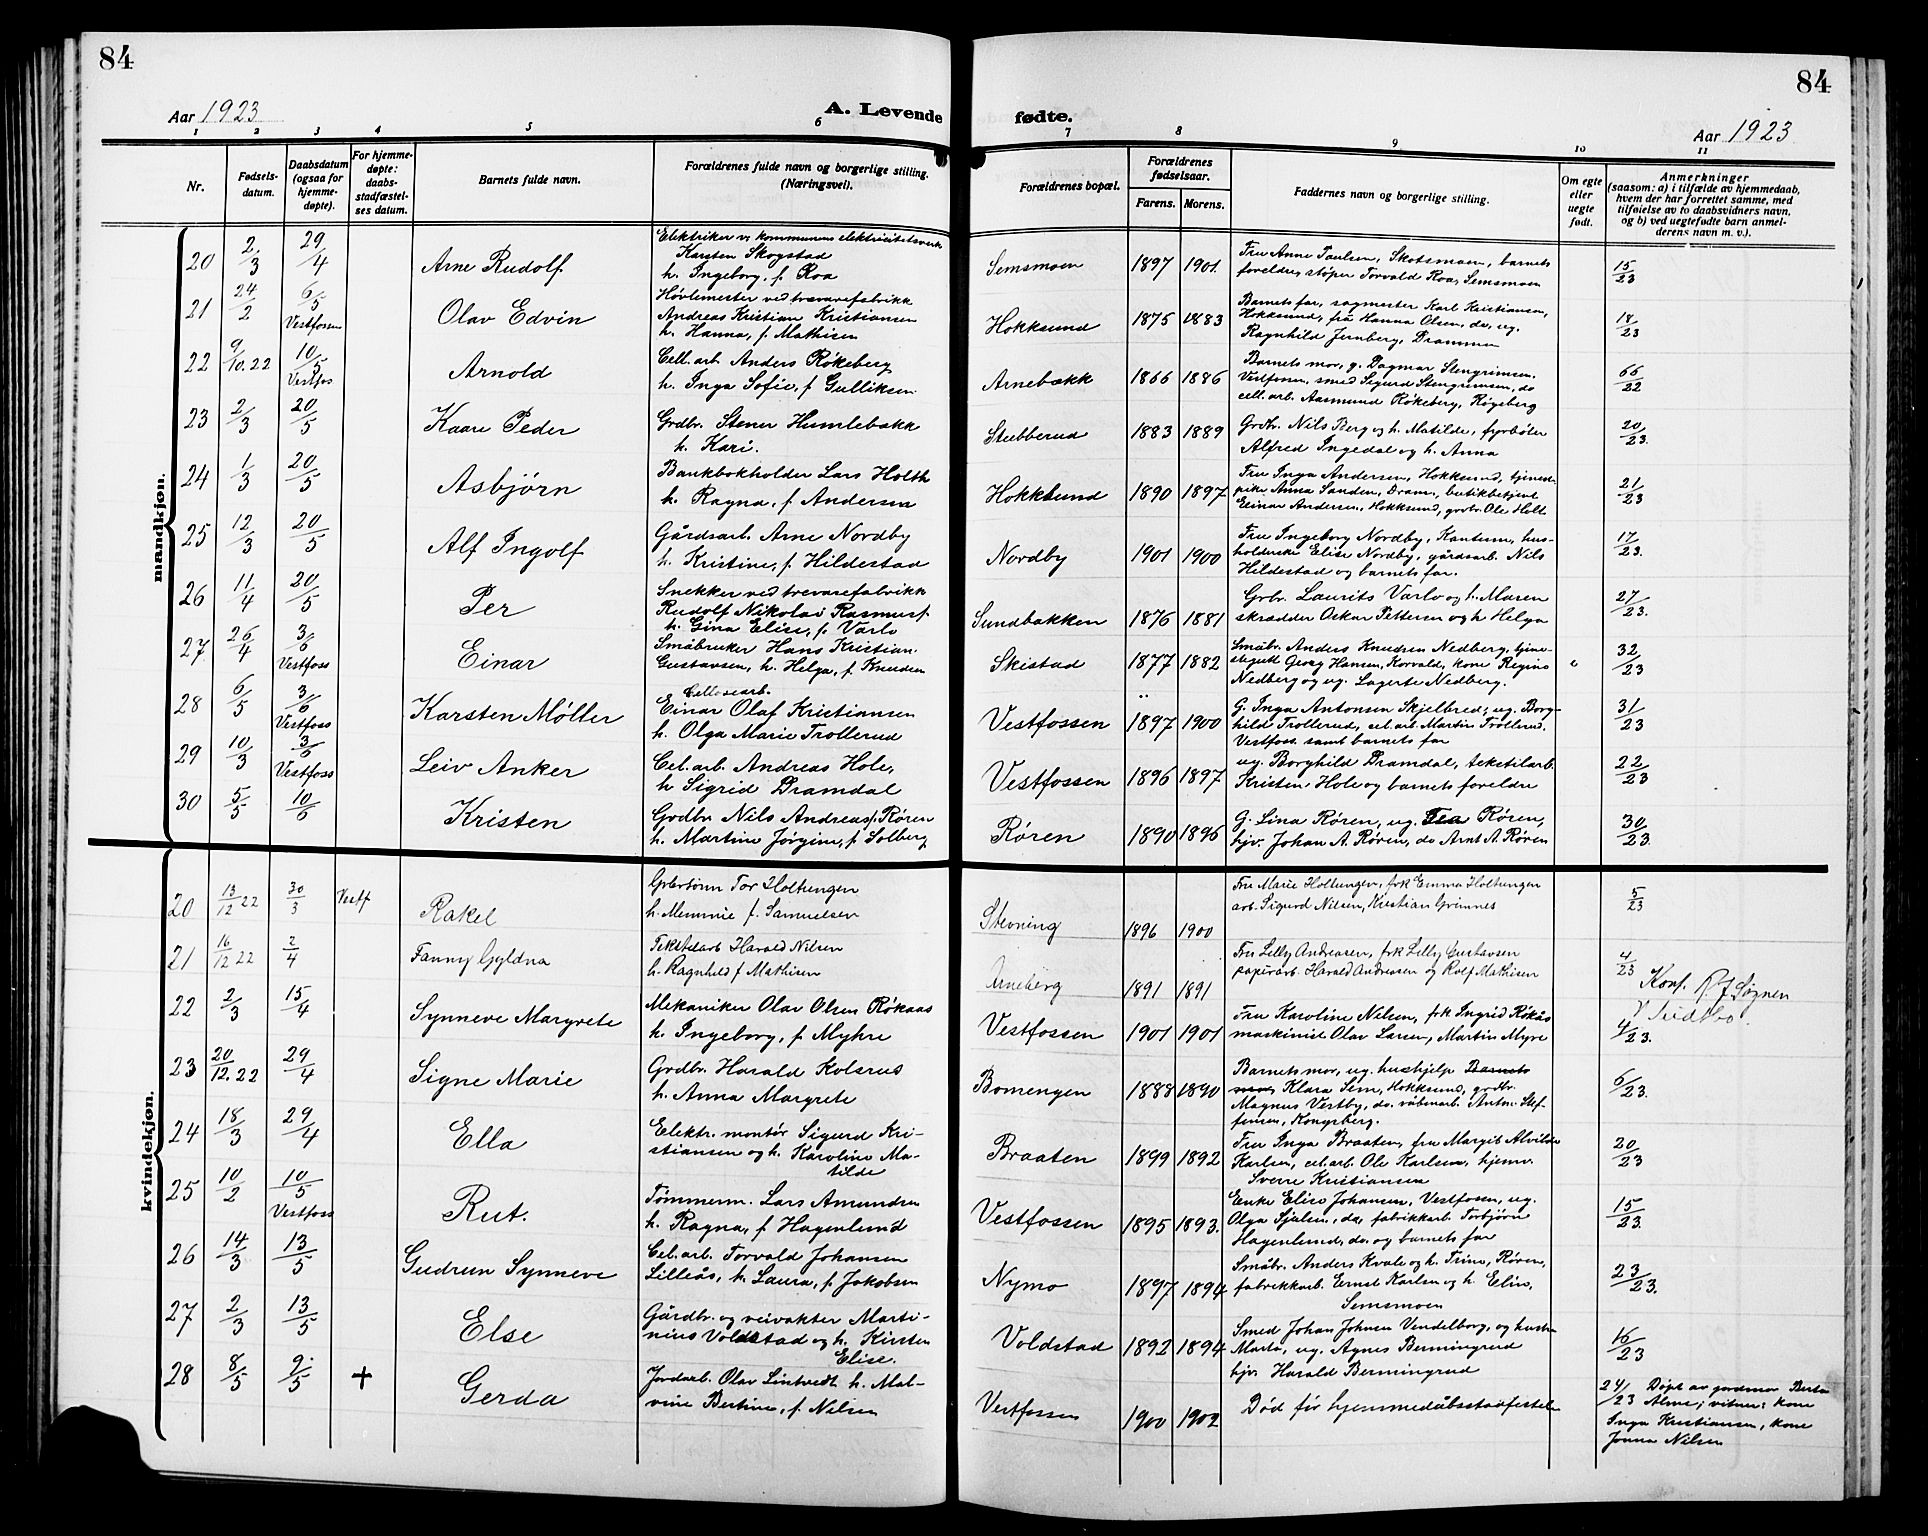 84
84
Aar 1923
A. Levende
fødte.
Aar 1923
1 2 3 4 5 6 7 8 9 10 11
Nr.
Fødsels-
datum.
Daabsdatum
(ogsaa for
hjemme-
døpte).
For hjemme-
døpte:
daabs-
stadfæstel-
ses datum.
Barnets fulde navn.
Forældrenes fulde navn og borgerlige stilling.
(Næringsvei).
Forældrenes bopæl.
Forældrenes
fødselsaar.
Farens. Morens.
Faddernes navn og borgerlige stilling.
Om egte
eller
uegte
født.
Anmerkninger
(saasom: a) i tilfælde av hjemmedaab,
hvem der har forrettet samme, med
tilføielse av to daabsvidners navn,
og b) ved uegtefødte barn anmel-
derens navn m. v.).
mandkjøn.
20 2/3 29/4 Arne Rudolf
Elektriker v. kommunens elektricitetsverk
Karsten Skogstad
h. Ingeborg, f. Roa
Semsmoen 1897 1901
Fru Anne Paulsen, Skotsmoen, barnets
foreldre, støper Torvald Roa, Semsmoen
15/23
21 24/2 6/5 Vestfossen Olav Edvin
Høvlemester ved trevarefabrikk
Andreas Kristian Kristiansen
h. Hanna, f. Mathisen
Hokksund 1875 1883
Barnets far, sagmester Karl Kristiansen,
Hokksund, fru Hanna Olsen, do, ug.
Ragnhild Jernberg, Drammen
18/23
22 9/10.22 10/5 Vestfos Arnold
Cell. arb. Anders Røkeberg
h. Inga Sofie, f. Gulliksen
Arnebakk 1866 1886
Barnets mor, g. Dagmar Stengrimsen,
Vestfossen, smed Sigurd Stengrimsen, do
cell. arb. Aasmund Røkeberg, Røgeberg
66/22
23 2/3 20/5 Kaare Peder
Grdbr. Stener Humlebakk
h. Kari.
Stubberud 1883 1889
Grdbr. Nils Berg og h. Matilde, fyrbøter
Alfred Ingedal og h. Anna
20/23.
24 1/3 20/5 Asbjørn
Bankbokholder Lars Holth
h. Ragna, f. Andersen
Hokksund 1890 1897
Fru Inga Andersen, Hokksund, tjenest-
pike Anna Sanden, Dram., butikbetjent
Einar Andersen, Hokksund, grdbr. Ole Holt
21/23
25 12/3 20/5 Alf Ingolf
Gårdsarb. Arne Nordby
h. Kristine, f. Hildestad
Nordby 1901 1900
Fru Ingeborg Nordby, Kantum, hus-
holderske Elise Nordby, gårdsarb. Nils
Hildestad og barnets far.
17/23.
26 11/4 20/5 Per
Snekker ved trevarefabrikk
Rudolf Nikolai Rasmus.
h. Gina Elise, f. Varlo
Sundbakken 1876 1881
Grbr. Laurits Varlo og h. Maren
skrædder Oskar Pettersen og h. Helga
27/23.
27 26/4 3/6 Vestfoss Einar
Småbruker Hans Kristian
Gustavsen, h. Helga, f. Knudsen
Skistad 1877 1882
Småbr. Anders Knudsen Nedberg, tjene-
stegutt Georg Hansen, Korvald, kone Regine
Nedberg og ug. Lagerte Nedberg.
32/23
28 6/5 3/6 Vestfoss Karsten Møller
Cellosearb.
Einar Olaf Kristiansen
h. Olga Marie Trollerud
Vestfossen 1897 1900
G. Inga Antonsen Skjelbred, ug. Borg-
hild Trollerud, cel. arb. Martin Trollerud,
Vestfoss. samt barnets far
31/23
29 10/3 3/6 Vestfoss Leiv Anker
Cel. arb. Andreas Hole,
h Sigrid Dramdal
Vestfossen 1896 1897
ug. Borghild Dramdal, tekstilarb.
Kristen Hole og barnets foreldre
22/23
30 5/5 10/6 Kristen
Grdbr Nils Andreas J. Røren
h. Martine Jørgine, f. Solberg
Røren 1890 1896
G. Lina Røren, ug. Tea Røren,
hjv. Johan A. Røren, do Arnt A. Røren
30/23.
kvindekjøn.
20 13/12 22 30/3 Vestf Rakel
Tor Holtungen
h. Memmie f. Samuelsen
Stevning 1896 1900
Fru Marie Holtungen, frk Emma Holtungen
arb. Sigurd Nilsen, Kristian Grimnes
5/23
21 16/12 22 2/4 Fanny Gyldna
Tekstilarb Harald Nilsen
h. Ragnhild f Mathisen
Arneberg 1891 1891
Fru Lilly Andreasen, frk Lilly Gustavsen
papirarb. Harald Andreasen og Rolf Mathisen
4/23
Konf.
22 2/3 15/4 Synneve Margrete
Mekaniker Olav Olsen Røkaas
h. Ingeborg, f Myhre
Vestfossen 1901 1901
Fru Karoline Nilsen, frk Ingrid Røkås
maskinist Olav Larsen, Martin Myre
4/23.
23 20/12.22 29/4 Signe Marie
Grdbr. Harald Kolsrus
h. Anna Margrete
Bomengen 1888 1890
Barnets mor, ug. hushjelp Barnets
mor, Klara Sem, Hokksund, grdbr.
Magnus Vestby, do. våbenarb. Anton Stef-
fensen, Kongsberg.
6/23.
24 18/3 29/4 Ella
Elektr. montør Sigurd Kri-
stiansen og h. Karoline Ma-
tilde
Braaten 1899 1892
Fru Inga Braaten, fru Margit Alvilde
Karlsen, cel. arb. Ole Karlsen, hjemv.
Sverre Kristiansen
20/23
25 10/2 10/5 Vestfoss Rut.
Tømmerm. Lars Amundsen
h. Ragna, f Hagenlund
Vestfossen 1895 1893.
Enke Elise Johansen, Vestfossen, ug.
Olga Sjulsen, do, fabrikkarb. Torbjørn
Hagenlund, do. og barnets far
15/23.
26 14/3 13/5 Gudrun Synneve
Cel. arb. Torvald Johansen
Lilleås, h. Laura, f. Jakobsen
Nymo 1897 1894
Småbr. Anders Kvale og h. Trine, Røren,
fabrikkarb. Ernst Karlsen og h. Elise,
Semsmoen
23/23.
27 2/3 13/5 Else
Gårdbr. og veivokter Marti-
nius Voldstad og h. Kirsten
Elise.
Voldstad 1892 1894
Smed Johan Johnsen Vendelborg, og hustru
Marta, ug. Agnes Bermingrud
hjv. Harald Bermingrud
16/23
28 8/5 9/5 + Gerda
Jordarb. Olav Lintvedt h. Mal-
vine Bertine, f. Nilsen
Vestfossen 1900 1902
Død før hjemmedåbsstadfestelse
24/23 Døpt av jordmor Berta
Alme; vitner: kone
Inga Kristiansen, kone
Jonna Nilsen